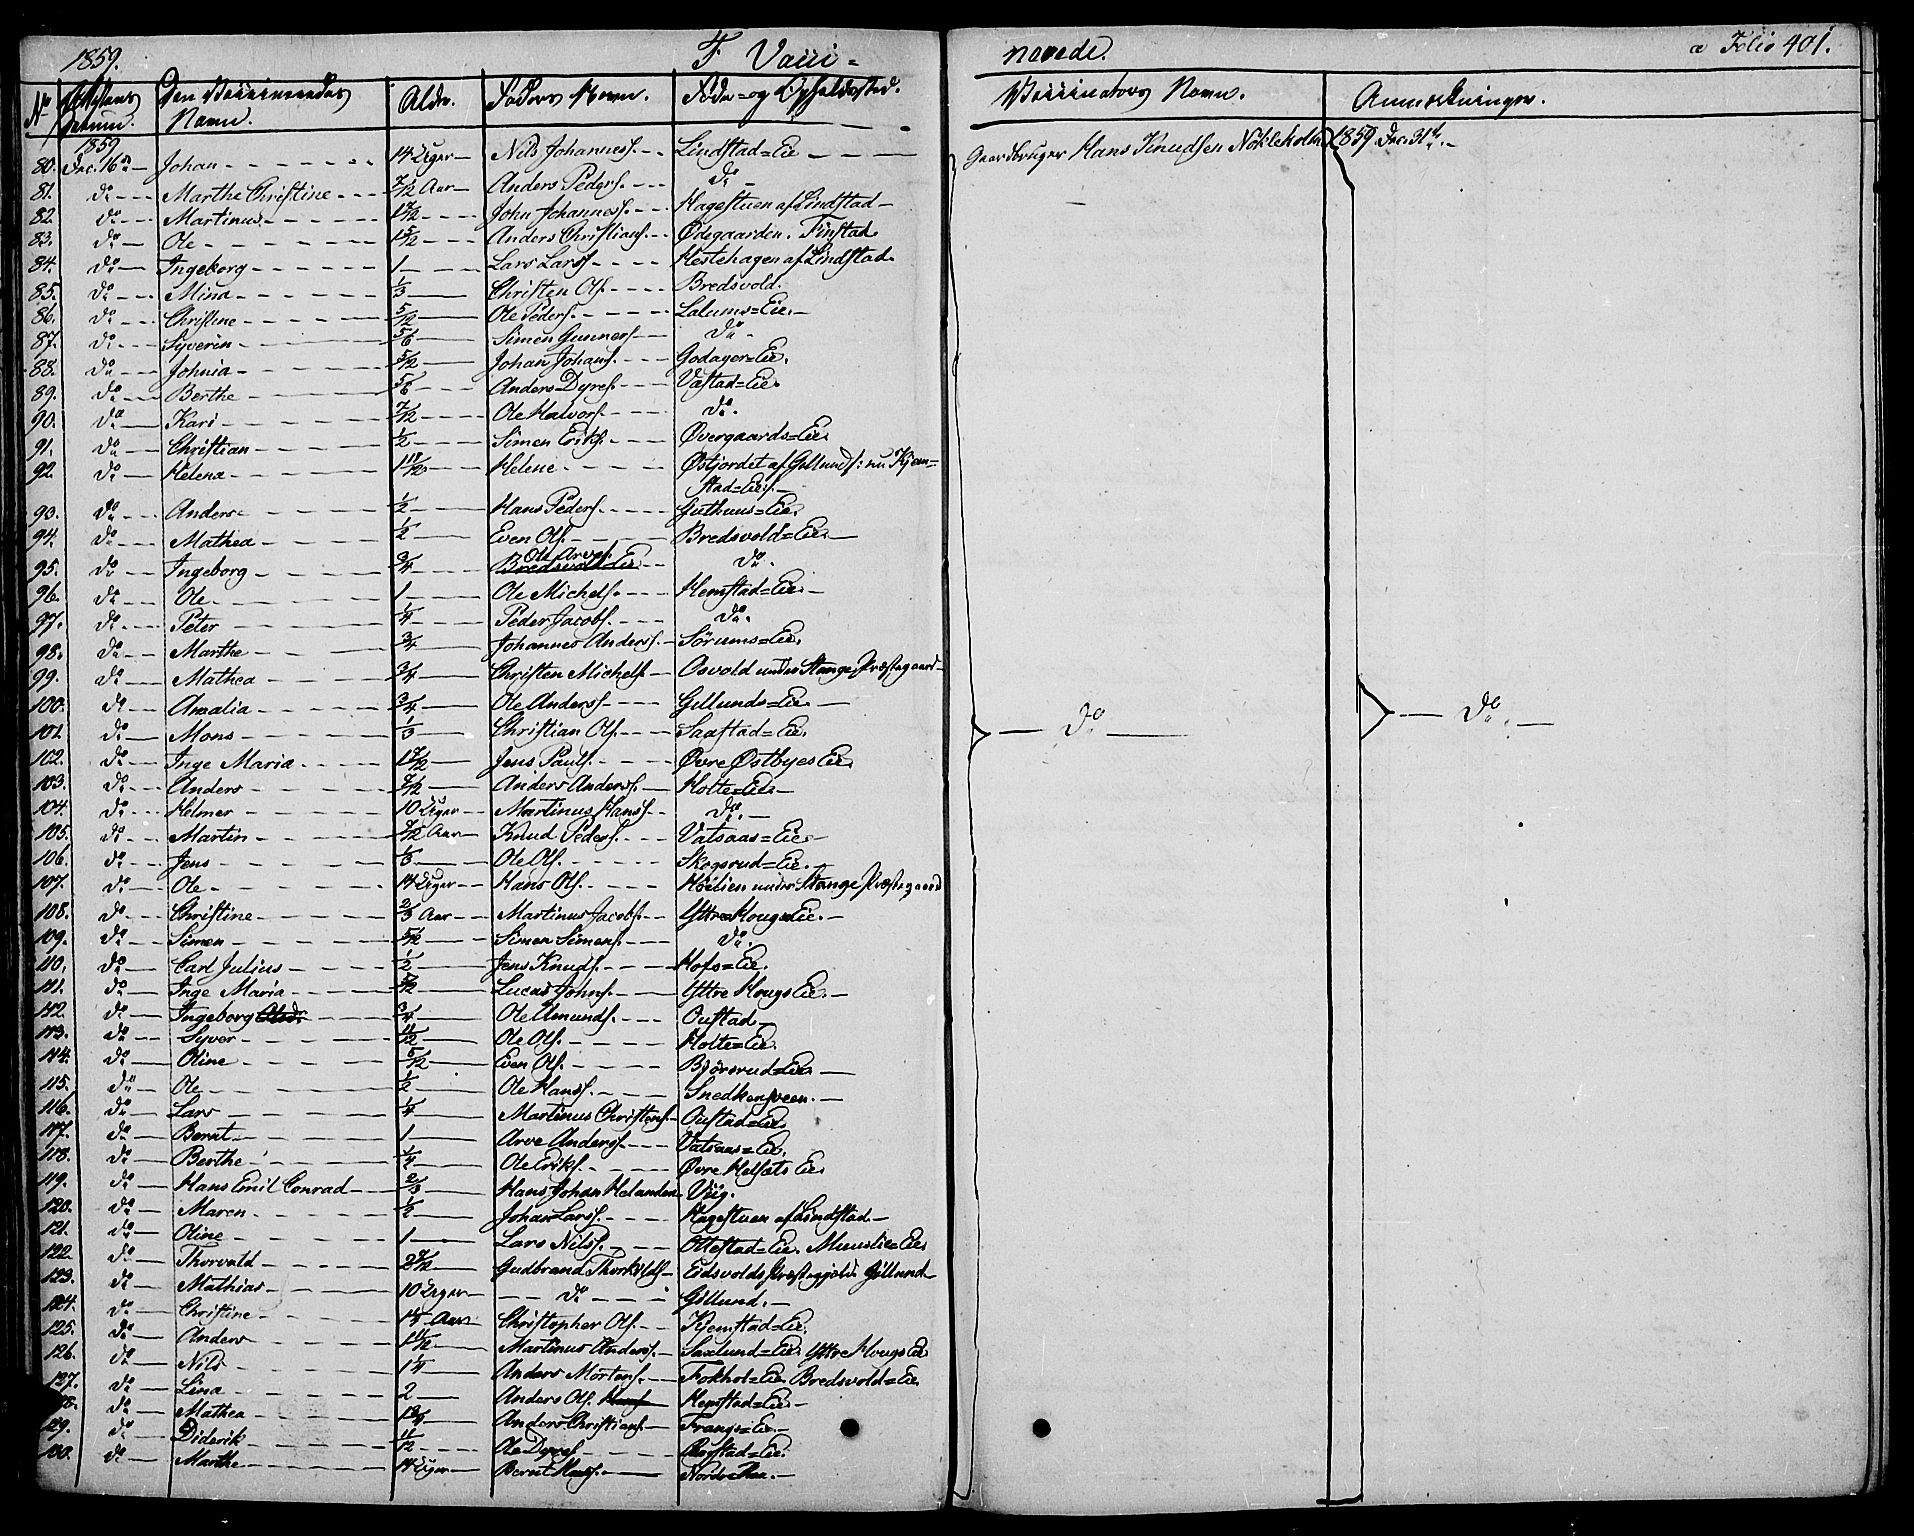 1859. F. Vacci-
No Attestens Datum. Den Vaccineredes Navn. Alder. Faders Navn. Føde- og Opholdssted.
1859
80. Dec. 16de Johan 14 Uger Nils Johanness. Lindstad=Eie
81. do Marthe Christine 7/12 Aar Anders Peders. do
82. do Martinus 1 7/12 John Johanness. Hagestuen af Lindstad
83. do Ole 1 5/12 Anders Christians. Ødegaarden. Tinstad
84. do Ingeborg 1 Lars Larss. Hestehagen af Lindstad
85. do Mina 1/3 Christen Ols. Bredsvold.
86. do Christine 5/12 Ole Peders. Lalums=Eie.
87. do Syverin 5/6 Simen Gunners. do
88. do Johnia 5/12 Johan Johans. Godager=Eie.
89. do Berthe 5/6 Anders Dyres. Vastad=Eie.
90. do Kari 7/12 Ole Halvors. do.
91. do Christian 1/2 Simen Eriks. Øvergaards=Eie
92. do Helena Helene Østjordet af Gillund /: nu Kjem-
stad=Eie :/
93. do Anders 1/2 Hans Peders. Guthuus=Eie.
94. do Mathea 1/2 Even Ols. Bredsvold=Eie.
Ole Arves.
95. do Ingeborg 3/4 Bredsvold=Eie do.
96. do Ole 1 Ole Michels. Hemstad=Eie.
97. do Peter 1/4 Peder Jacobs. do.
98. do Marthe 3/4 Johannes Anders. Sørums=Eie.
99. do Mathea 3/4 Christen Michels. Osvold under Stange Præstegaard
100. do Amalia 3/4 Ole Anders. Gillunds=Eie.
101. do Mons 1/3 Christian Ols. Saastad=Eie.
102. do Inge Maria 1 7/12 Jens Pauls. Øvre Østbyes Eie
103. do Anders 7/12 Anders Anders. Holte=Eie
104. do Helmer 10 Uger Martinus Hanss. do.
105. do Martin 7/12 Aar Knud Peders. Vatsaas=Eie
106. do Jens 1/3 Ole Ols. Skogsrud=Eie.
107. do Ole 14 Uger Hans Ols. Höilien under Stange Præstegaard
108. do Christine 2/3 Aar Martinus Jacobs. Yttre Hougs=Eie.
109. do Simen 5/12 Simen Simens. do.
110. do Carl Julius 1/2 Jens Knuds. Hofs=Eie.
111. do Inge Maria 5/12 Lucas Johns. Yttre Hougs Eie.
112. do Ingeborg Olsdr. 3/4 Ole Amunds. Oustad
113. do Syver 11/12 Ole Ols. Holte=Eie.
114. do Oline 5/12 Even Ols. Bjørsrud=Eie.
115. do Ole 1/2 Ole Hanss. Snedkersveen.
116. do Lars 1/4 Martinus Christens. Oustad=Eie
117. do Bernt 1 Arve Anders. Vatsaas=Eie.
118. do Berthe 1/4 Ole Eriks. Øvre Helsets Eie
119. do Hans Emil Conrad 2/3 Hans Johan Helanden Viig.
120. do Maren 1/2 Johan Larss. Hagestuen af Lindstad
121. do Oline 1 Lars Nilss. Ottestad=Eie. Muuslie=Eie
122. do Thorvald Gudbrand Thorkilds. Eidsvolds Præstegjeld. Gillund
123. do Mathias 10 Uger do Gillund.
124. do Christine Aar Christopher Ols. Kjemstad=Eie.
125. do Anders 1 11/12 Martinus Anders. Saxlund=Eie. Yttre Hougs Eie
126. do Nils 1 1/4 Anders Mortens. Fokhol=Eie. Bredsvold=Eie
127. do Lina 2 Anders Ols. Hemstad=Eie.
128. do Mathea 1 3/4 Anders Christians. Frangs=Eie.
129. do Diderik 11/12 Ole Dyres. Eie.
130. do Marthe 14 Uger Bernt Hanss.
nerede. a Folio 401.
Vaccinatørs Navn. Anmærkninger.
Gaardbruger Hans Knudsen Nökleholm 1859 Dec. 31te.
do do